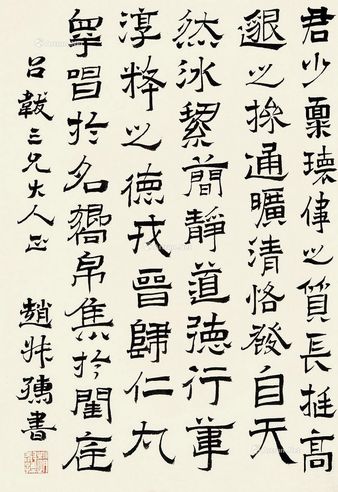 君少稟瓌偉之質長挺高
邈之操通曠清恪發自天
然冰絜簡靜道德行葦
淳粹之德戎晉歸仁九
皋唱於名嚮帛集於閨庭
呂三兄大人正 趙叔孺書